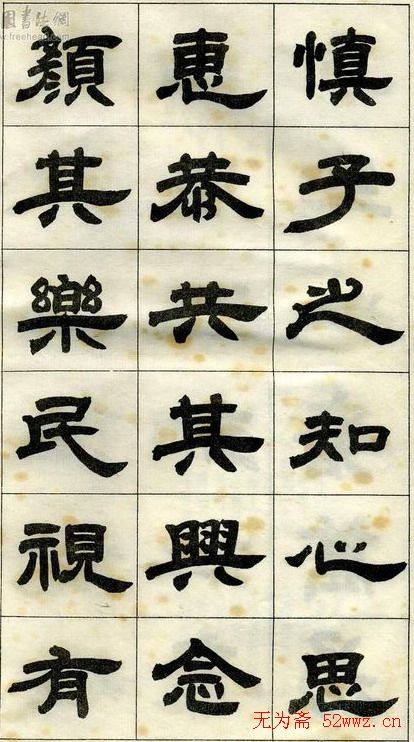 慎子之知心思
惠恭共其興念
顏其樂民視有
書法網
www.freehead
无为斋 52wwz.cn